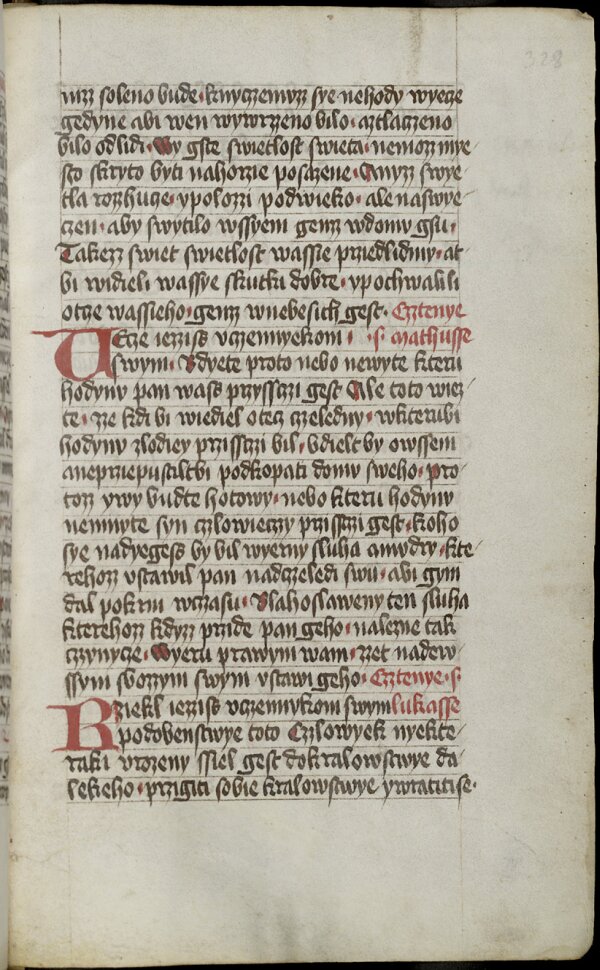 328
mzz soleno bude · knyczemuzz sye nehody wyecze
gedyne abi wen wywrzeno bilo · aztlaczeno
bilo od lidi · Wy gste swietlost swieta · nemozz mye-
sto skryto byti nahorzie posazene · Anyzz swye-
tla rozzhucze · ypolozzi podwieko · ale naswye-
czen · aby swytilo wssyem genzz wdomu gsu ·
Takezz swiet swietlost wassie prziedlidmy · at
bi widieli wassye skutki dobre · ypochwalili
otcze wassieho · genzz wnebesich gest · Cztenye
Uecze iezziss vczennyekom · s · mathusse
swym · Bdyete proto nebo newyte kteru
hodynu pan wass przyssczi gest Ale toto wiez-
te · zze kdi bi wiediel otecz czeledny · wkterubi
hodynu zlodiey przissczi bil · bdielt by owssem
aneprziepustiltbi podkopati domu sweho · pro-
tozz ywy budte hotowy · nebo kteru hodynu
nemnyte syn czlowieczy przissczi gest · koho
sye nadyegess by bil wyerny sluha amudry · kte-
rehozz vstawil pan nadczeledi swu · abi gym
dal pokrm wczasu · Blahoslaweny ten sluha
kterehozz kdyzz przide pan geho · nalezne tak
czynycze · Wyeru prawym wam · zzet nadew-
ssym sbozzym swym vstawi geho · Cztenye · s ·
Rziekl iezziss vczennykom swym lukasse
podobenstwye toto Czlowyek nyekte-
raki vrozeny ssiel gest dokralowstwye da-
lekeho · przigiti sobie kralowstwye ywratitise ·